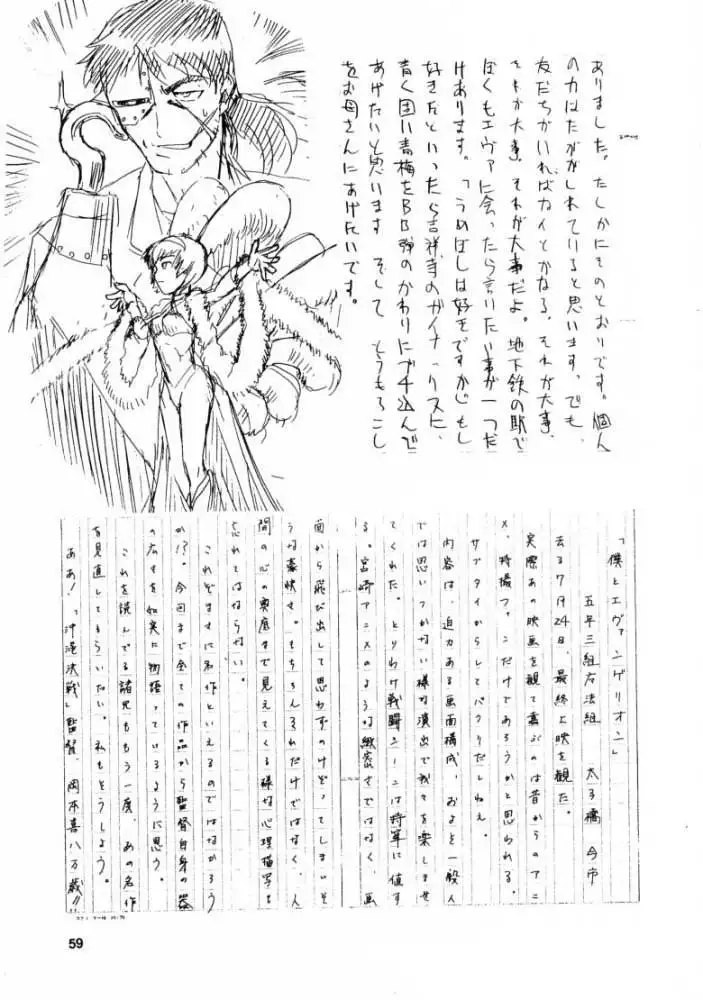 ありました。たしかにそのとおりです。個人
の力はたかがしれていると思います。でも、
友だちがいればナイとかなる。それが大事、
それが大事、それが大事だよ。地下鉄の駅で
ぼくもエヴァに会ったら言いたい事が一つだ
けあります。「うめぼしは好きですか」もし
好きだといったら吉祥寺のガイナックスに、
青く固い青梅をBB弾のかわりにブチ込んで
あげたいと思います そして とうもろこし
をお母さんにあげたいです。
「僕とエヴァンゲリオン」
五年三組 太子橋 今市
去る7月24日、最終上映を観た。
実際あの映画を観て喜ぶのは昔からのアニ
メ、特撮ファンだけであろうかと思われる。
サブタイからしてパクリだしねぇ。
内容は、迫力ある画面構成、およそ一般人
では思いつかない様な演出で我々を楽しませ
てくれた。とりわけ戦闘シーンは特筆に値す
る。宮崎アニメのような緻密さではなく、画
面から飛び出して思わずのけぞってしまいそ
うな豪快さ。もちろんそれだけではなく、人
間の心の奥底まで見えてくる様な心理描写も
忘れてはならない。
これぞまさに名作といえるのではなかろう
か!?。今回まで全ての作品から監督自身の器
の広さを如実に物語っているように思う。
これを読んでる諸兄ももう一度、あの名作
を見直してもらいたい。私もそうしよう。
ああ!「沖縄決戦」監督、岡本喜八万歳!!
59